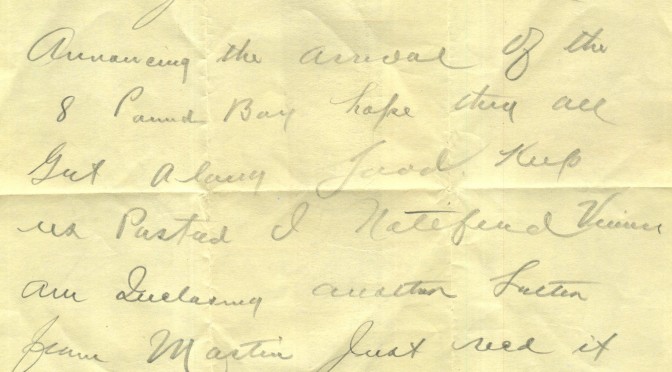 Announcing the arrival of the
8 Pound Boy hope they all
Get along Good. Keep
us Posted I Notefied
am Inclosing another Letter
from Martin Just recd it